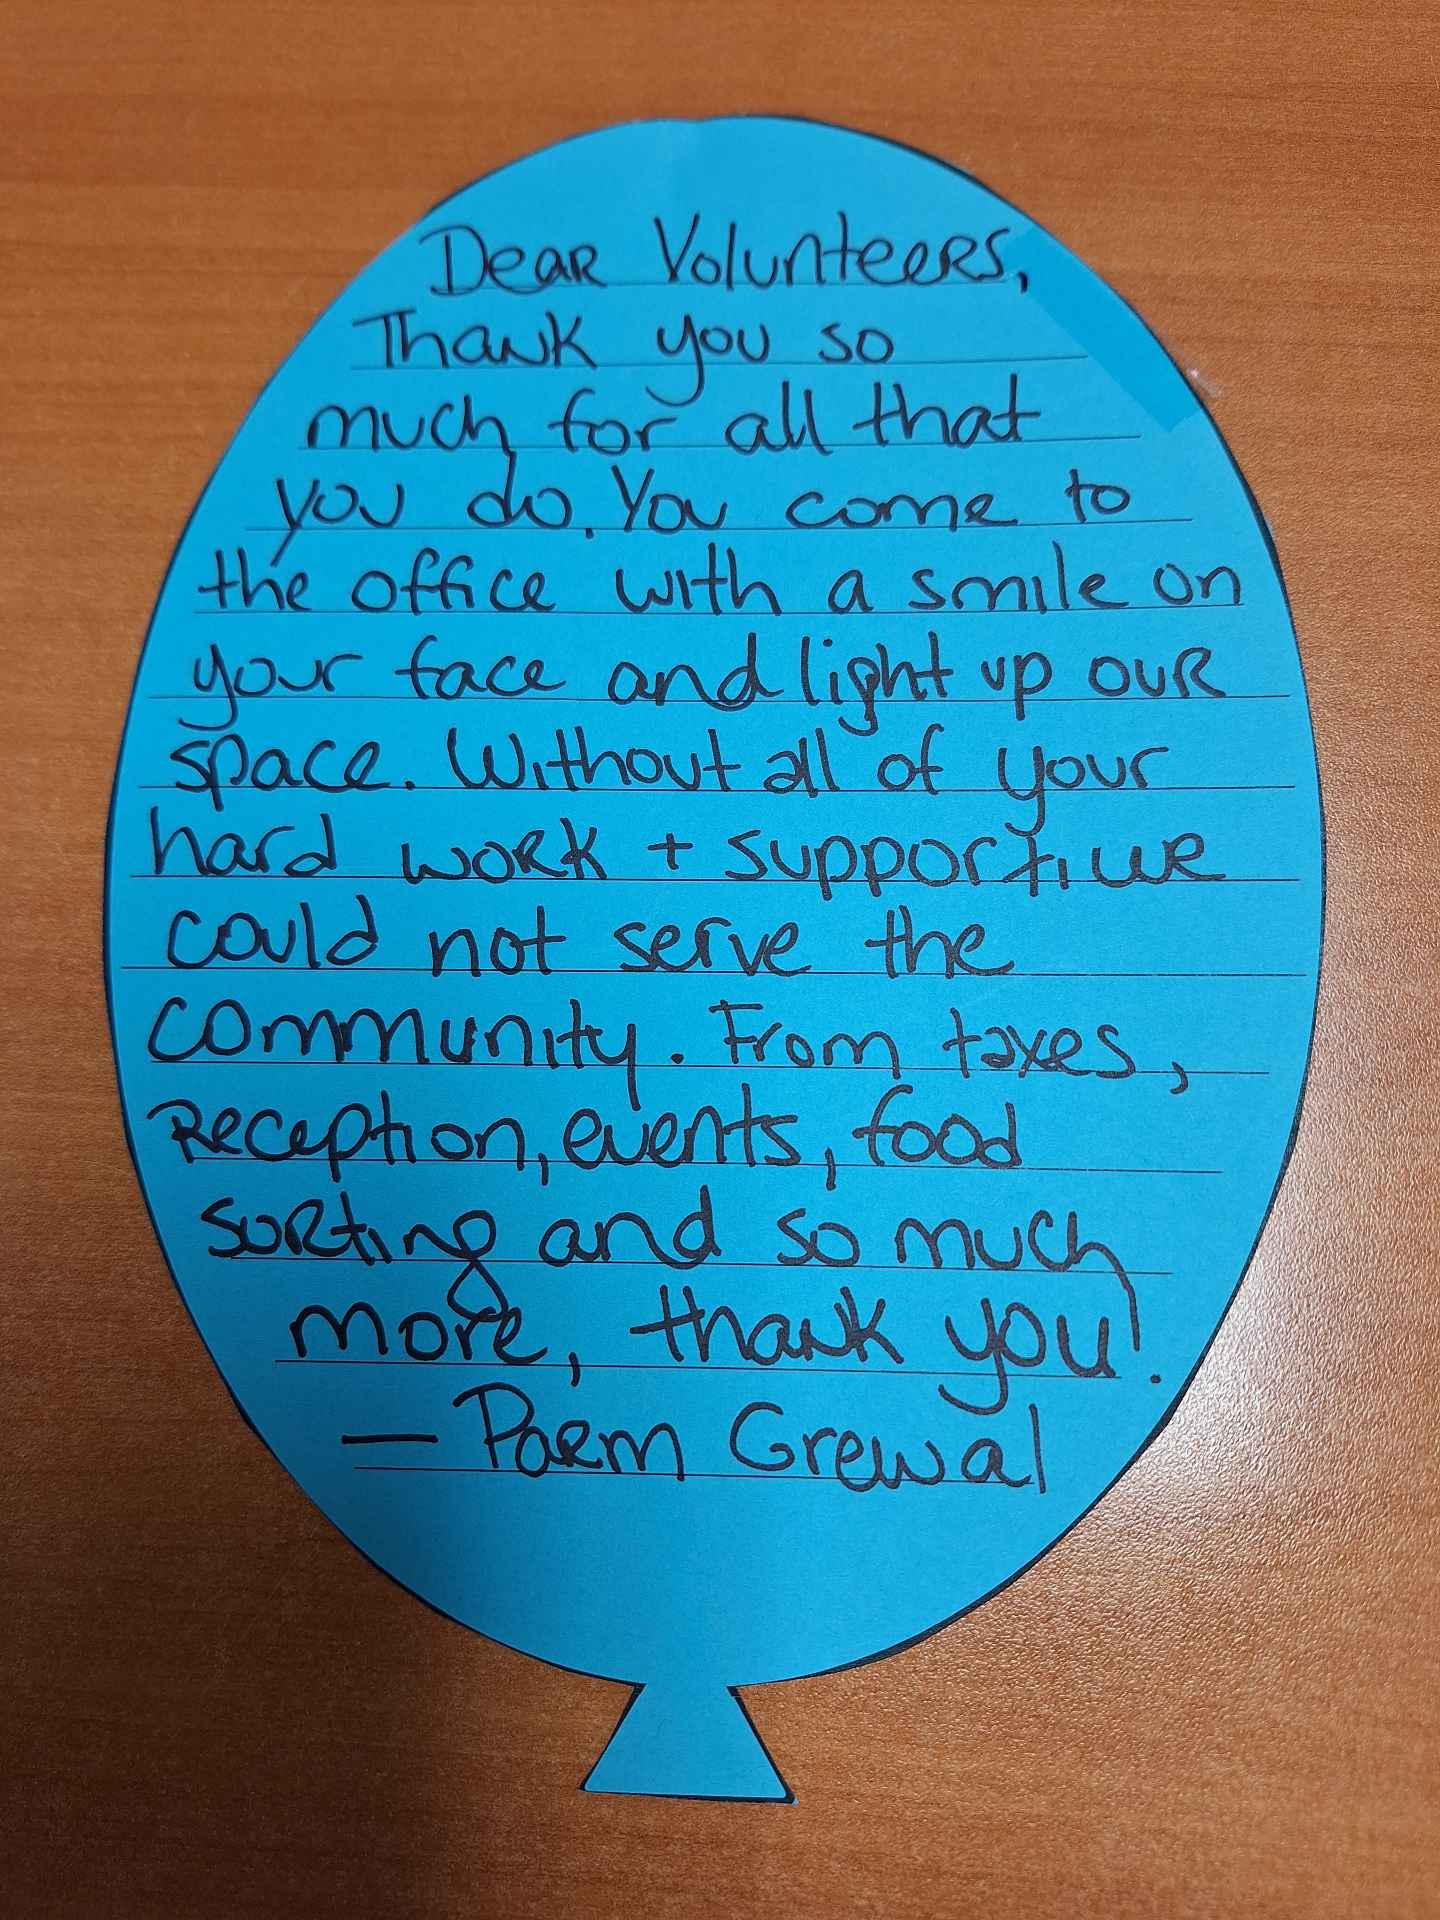 Dear Volunteers,
Thank you so
much for all that
you do. You come to
the office with a smile on
your face and light up our
space. Without all of your
hard work + support, we
could not serve the
community. From taxes,
Reception, events, food
sorting and so much
more, thank you!
— Parm Grewal